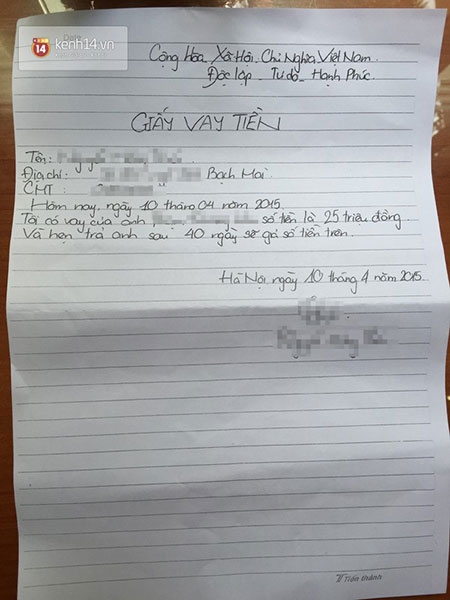 14 kenh14.vn
Date
Cộng Hòa Xã Hội Chủ Nghĩa Việt Nam.
Độc lập - Tự do - Hạnh Phúc.
GIẤY VAY TIỀN
Tên:
Địa chỉ: Bạch Mai
CMT :
Hôm nay, ngày 10 tháng 04 năm 2015.
Tôi có vay của anh số tiền là 25 triệu đồng.
Và hẹn trả anh sau 40 ngày sẽ số tiền trên.
Hà Nội, ngày 10 tháng 4 năm 2015.
Tiến thành